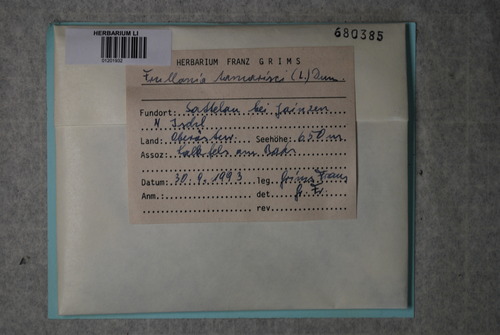 HERBARIUM LI
680385
HERBARIUM FRANZ GRIMS
Frullania tamarisci (L.) Dum.
Fundort: Sattelau bei Jainzen
N Ischl
Land: Oberösterr. Seehöhe: 650 m
Assoz: Kalkfels am Bach
Datum: 30.4.1993 leg. Grims Franz
Anm.: det Gr. Fr.
rev